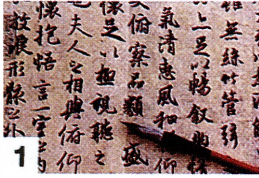 無絲竹管弦
足以暢敘幽
氣清惠風和仰
俯察品類盛
懷足以極視聽之
夫人之相與俯仰
懷抱悟言一室之
放浪形骸之外
1